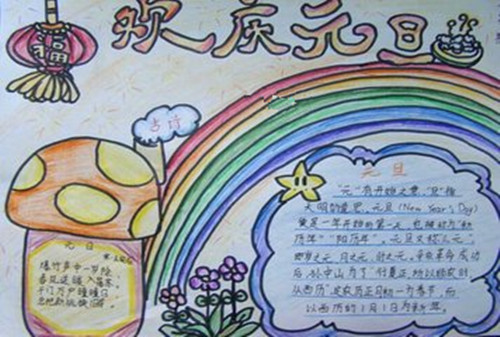 欢庆元旦
福
古诗
元日
宋·王安石
爆竹声中一岁除
春风送暖入屠苏
千门万户曈曈日
总把新桃换旧符
元旦
"元"有开始之意,"旦"指
天明的意思。元旦(New Year's Day)
便是一年开始的第一天,也被称为"新
历年""阳历年"。元旦又称"三元",
即岁之元、月之元、时之元。
后,孙中山为了"行夏正,所以顺农时
从西历",定农历正月初一为春节,而
以西历的1月1日为新年。